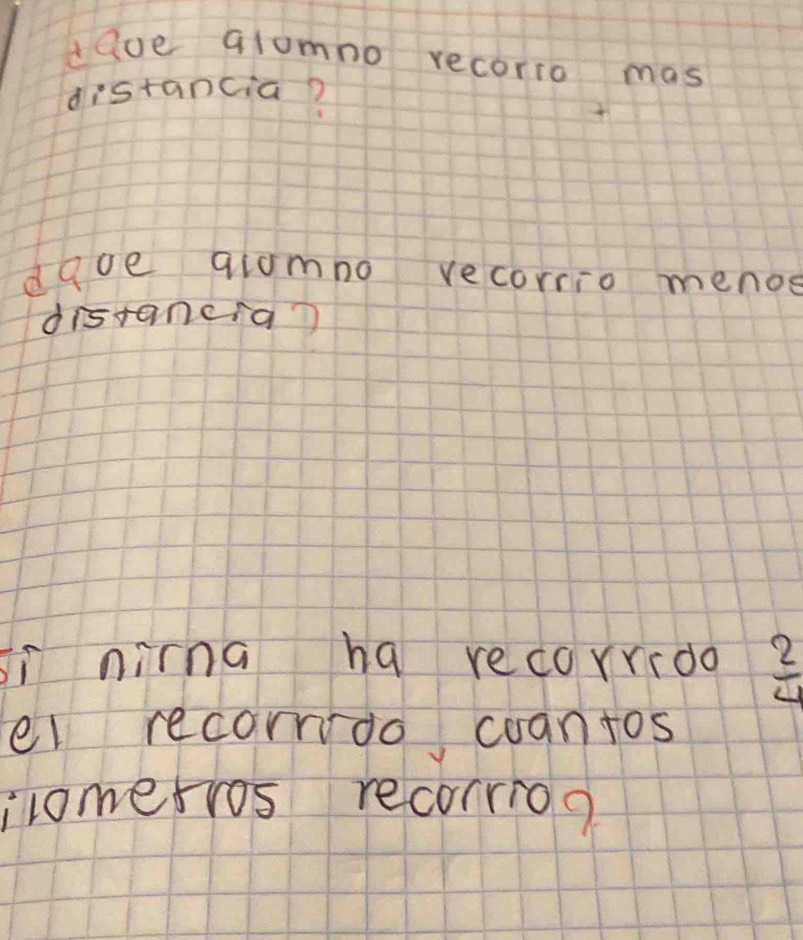 ¿Que alumno recorrio mas
distancia?
¿que alumno recorrio menos
distancia?
si nirna ha recorrido 2/4
el recorrido, cuantos
ilometros recorrio?